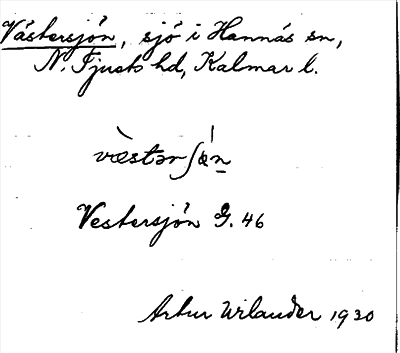 Västersjön, sjö i Hannäs sn,
N. Tjusts hd, Kalmar l.
væ̀stərʃø̍n
Vestersjön G. 46
Artur Wilander 1930